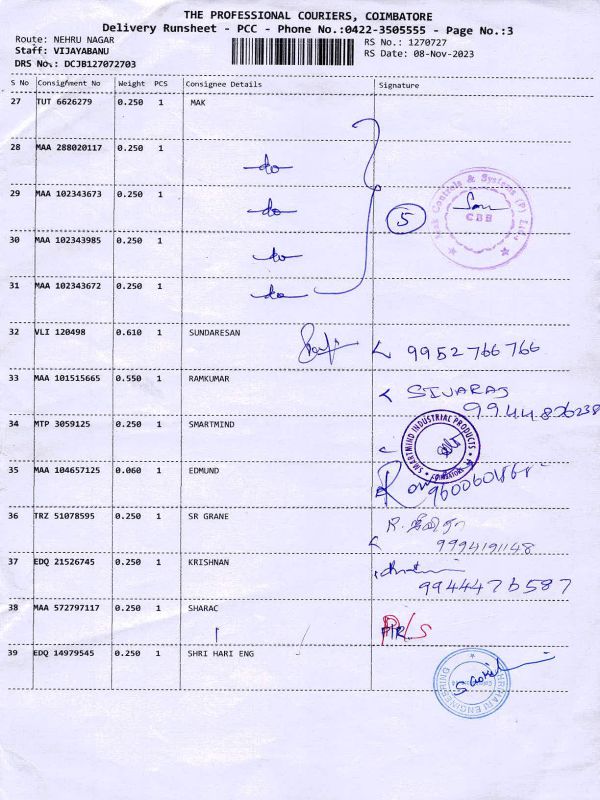 THE PROFESSIONAL COURIERS, COIMBATORE
Delivery Runsheet - PCC - Phone No.:0422-3505555 - Page No.:3
Route: NEHRU NAGAR RS No.: 1270727
Staff: VIJAYABANU RS Date: 08-Nov-2023
DRS No.: DCJB127072703
S No Consignment No Weight PCS Consignee Details Signature
27 TUT 6626279 0.250 1 MAK
28 MAA 288020117 0.250 1 do
29 MAA 102343673 0.250 1 do 5
Controls & Systems (P) Ltd
CBE
30 MAA 102343985 0.250 1 do
31 MAA 102343672 0.250 1 do
32 VLI 120498 0.610 1 SUNDARESAN 9952766766
33 MAA 101515665 0.550 1 RAMKUMAR SIVARAJ
9944826238
34 MTP 3059125 0.250 1 SMARTMIND
SMARTMIND INDUSTRIAL PRODUCTS
COIMBATORE
35 MAA 104657125 0.060 1 EDMUND
36 TRZ 51078595 0.250 1 SR GRANE
9994191148
37 EDQ 21526745 0.250 1 KRISHNAN
9944476587
38 MAA 572797117 0.250 1 SHARAC
39 EDQ 14979545 0.250 1 SHRI HARI ENG